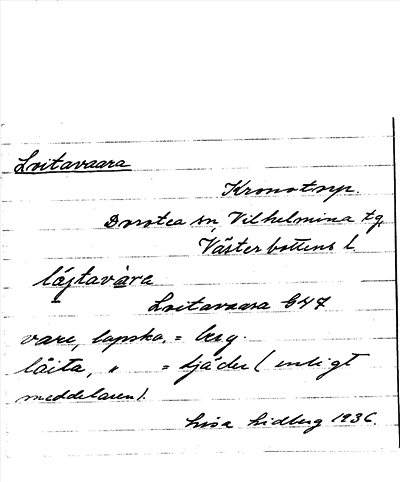 Loitavaara
Kronotorp.
Dorotea sn, Vilhelmina tg,
Västerbottens l.
låjtavàra
Loitavaara G47
vare, lapska, = berg.
låita, " = tjäder (enligt
meddelaren).
Lisa Lidberg 1936.